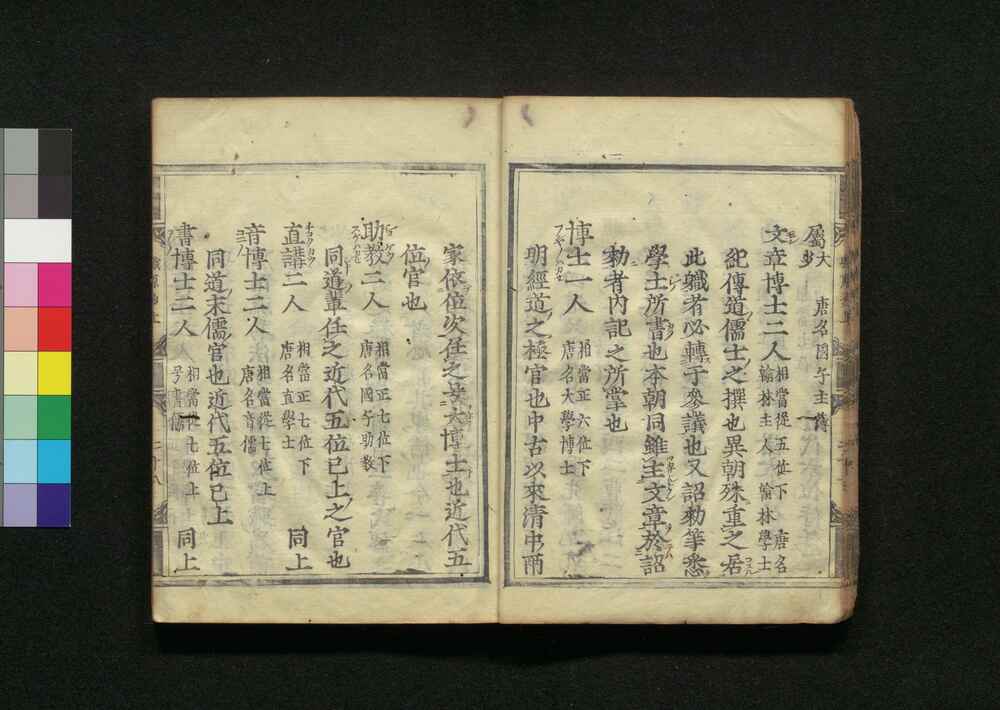 屬 大少 唐名國子主簿
文章博士二人 相當從五位下 唐名翰林主人 翰林學士
紀傳道儒士之撰也異朝殊重之居
此職者必轉于參議也又詔勅筆悉
學士所書也本朝同雖主文章於詔
勅者内記之所掌也
博士一人 相當正六位下 唐名大學博士
明經道之極官也中古以來清中兩
家依位次任之大博士也近代五
位官也
助教二人 相當正七位下 唐名國子助教
同道輩任之近代五位已上之官也
直講二人 相當正七位下 唐名直學士 同上
音博士二人 相當從七位上 唐名音儒
同道末儒官也近代五位已上
書博士二人 相當從七位上 号書儒 同上